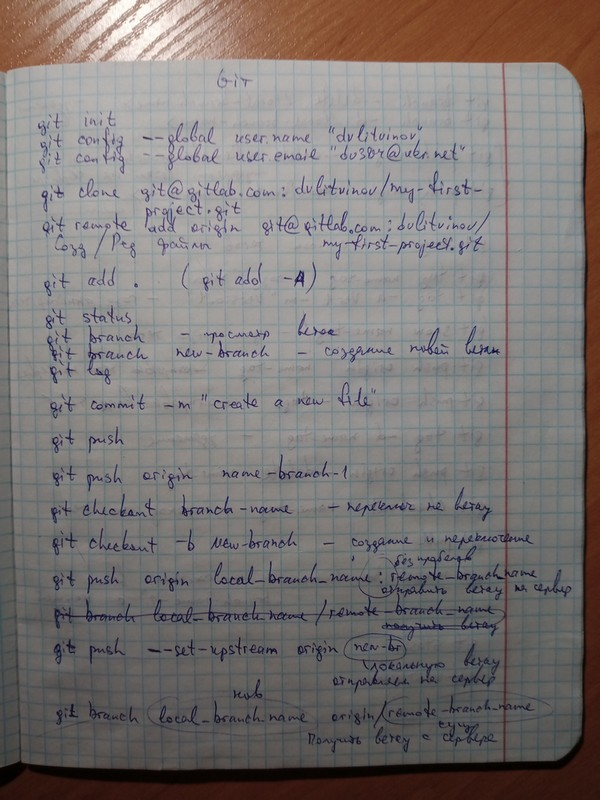 Git
git init
git config --global user.name "dvlitvinov"
git config --global user.email "dv304@ukr.net"
git clone git@gitlab.com:dvlitvinov/my-first-
project.git
git remote add origin git@gitlab.com:dvlitvinov/
Созд / Ред файлы my-first-project.git
git add . (git add -A)
git status
git branch - просмотр веток
git branch new-branch - создание новой ветки
git log
git commit -m "create a new file"
git push
git push origin name-branch-1
git checkout branch-name - переключ на ветку
git checkout -b new-branch - создание и переключение
без пробелов
git push origin local_branch_name : remote-branch_name
отправить ветку на сервер
git branch local_branch_name / remote-branch_name
получить ветку
git push --set-upstream origin new-br
локальную ветку
отправляем на сервер
нов
git branch local_branch_name origin/remote-branch_name
сущ
Получить ветку с сервера